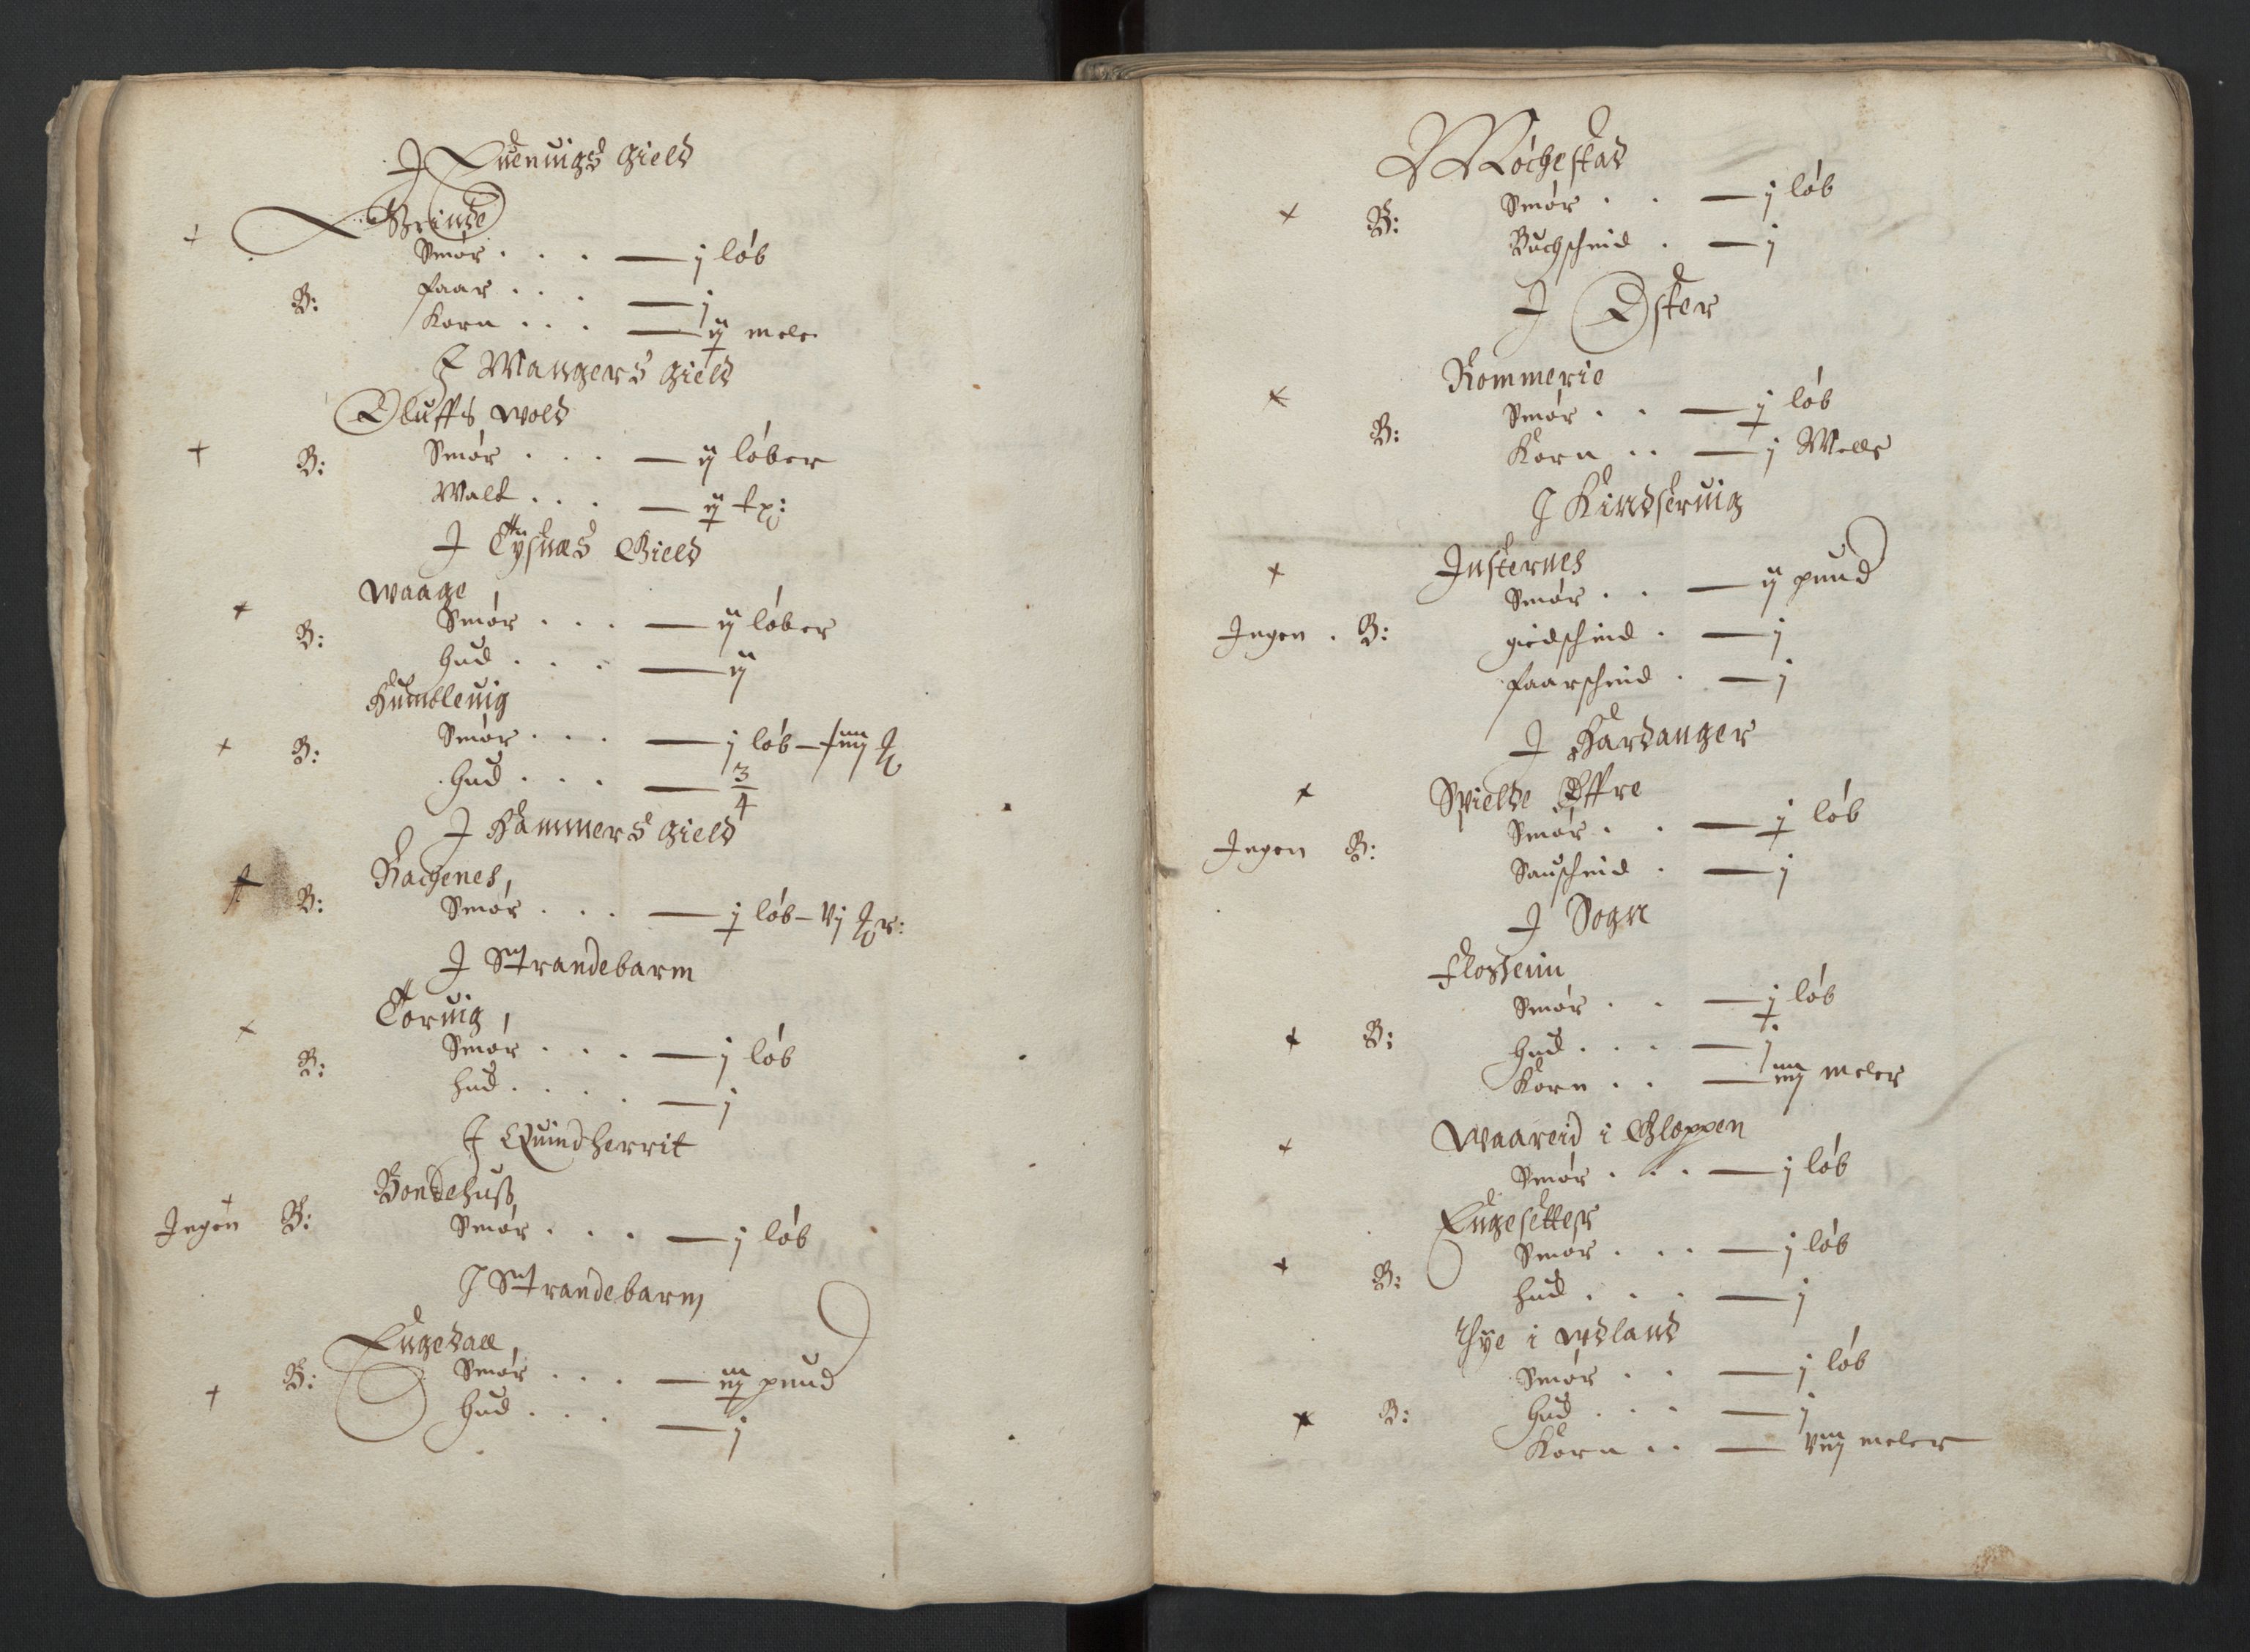 J Euenuigs gield
+ Brinde
Smør . . . — j løb
B: Faar . . . — j
Korn . . . — ij mele
J Mangers gield
Oluffs wold
+ B: Smør . . . — ij løber
Malt . . . — ij
J Tysnæs Gield
Waage
+ B: Smør . . . — ij løber
Hud . . . — ij
Humbleuig
+ B: Smør . . . — j løb —
Hud . . . — 3/4
J Hammers gield
Rachenes
+ B: Smør . . . — j løb — vj
J Strandebarm
Toruig
+ Smør . . . — j løb
B: hud . . . . — j
J Quindherrit
Bondehuss
+ Jngen B: Smør . . . — j løb
J Strandebarm
Engedall
+ B: Smør . . . — iij pund
Hud . . . — j
Møchestad
+ B: Smør . . — j løb
Buchschind . — j
J Oster
Rommerie
+ Smør . . — j løb
B: Korn . . — j Melle
J Kindseruig
Jnsternes
+ Smør . . — ij pund
Jngen . B: giedschind . — j
Faarschind . — j
J Hardanger
Spielde Øffre
+ Smør . . — j løb
Jngen B: Sauschind . — j
J Sogn
Flossenn
Smør . . — j løb
+ B: Hud . . . — j
Korn . . — iiij meler
Waareid i Gloppen
+ Smør . . . — j løb
Engesettess
+ Smør . . . — j løb
B: hud . . . — j
Thye i wdland
Smør . . — j løb
+ B: Hud . . . — j
Korn . . — viij meler